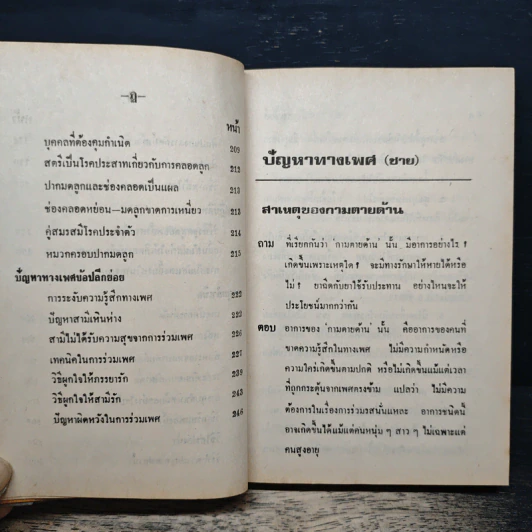 —ฎ—
หน้า
บุคคลที่ต้องคุมกำเนิด 209
สตรีเป็นโรคประสาทเกี่ยวกับการคลอดลูก 212
ปากมดลูกและช่องคลอดเป็นแผล 212
ช่องคลอดหย่อน—มดลูกขาดการเหนี่ยว 213
คู่สมรสมีโรคประจำตัว 214
หมวกครอบปากมดลูก 215
ปัญหาทางเพศบัปลีกย่อย
การระงับความรู้สึกทางเพศ 222
ปัญหาสามีเหินห่าง 225
สามีไม่ได้รับความสุขจากการร่วมเพศ 226
เทคนิคในการร่วมเพศ 227
วิธีผูกใจให้ภรรยารัก 239
วิธีผูกใจให้สามีรัก 243
ปัญหาผิดหวังในการร่วมเพศ 246
ปัญหาทางเพศ (ชาย)
สาเหตุของกามตายด้าน
ถาม ที่เรียกกันว่า 'กามตายด้าน' นั้น มีอาการอย่างไร ?
เกิดขึ้นเพราะเหตุใด ? จะมีทางรักษาให้หายได้หรือ
ไม่ ? ยาฉีดกับยาใช้รับประทาน อย่างไหนจะให้
ประโยชน์มากกว่ากัน
ตอบ อาการของ 'กามตายด้าน' นั้น คืออาการของคนที่
ขาดความรู้สึกในทางเพศ ไม่มีความกำหนัดหรือ
ความใคร่เกิดขึ้นตามปกติ หรือไม่เกิดขึ้นแม้แต่เวลา
ที่ถูกกระตุ้นจากเพศตรงข้าม แปลว่า ไม่มีความ
ต้องการในเรื่องการร่วมรสนั่นแหละ อาการชนิดนี้
อาจเกิดขึ้นได้แม้แต่คนหนุ่ม ๆ สาว ๆ ไม่เฉพาะแต่
คนสูงอายุ